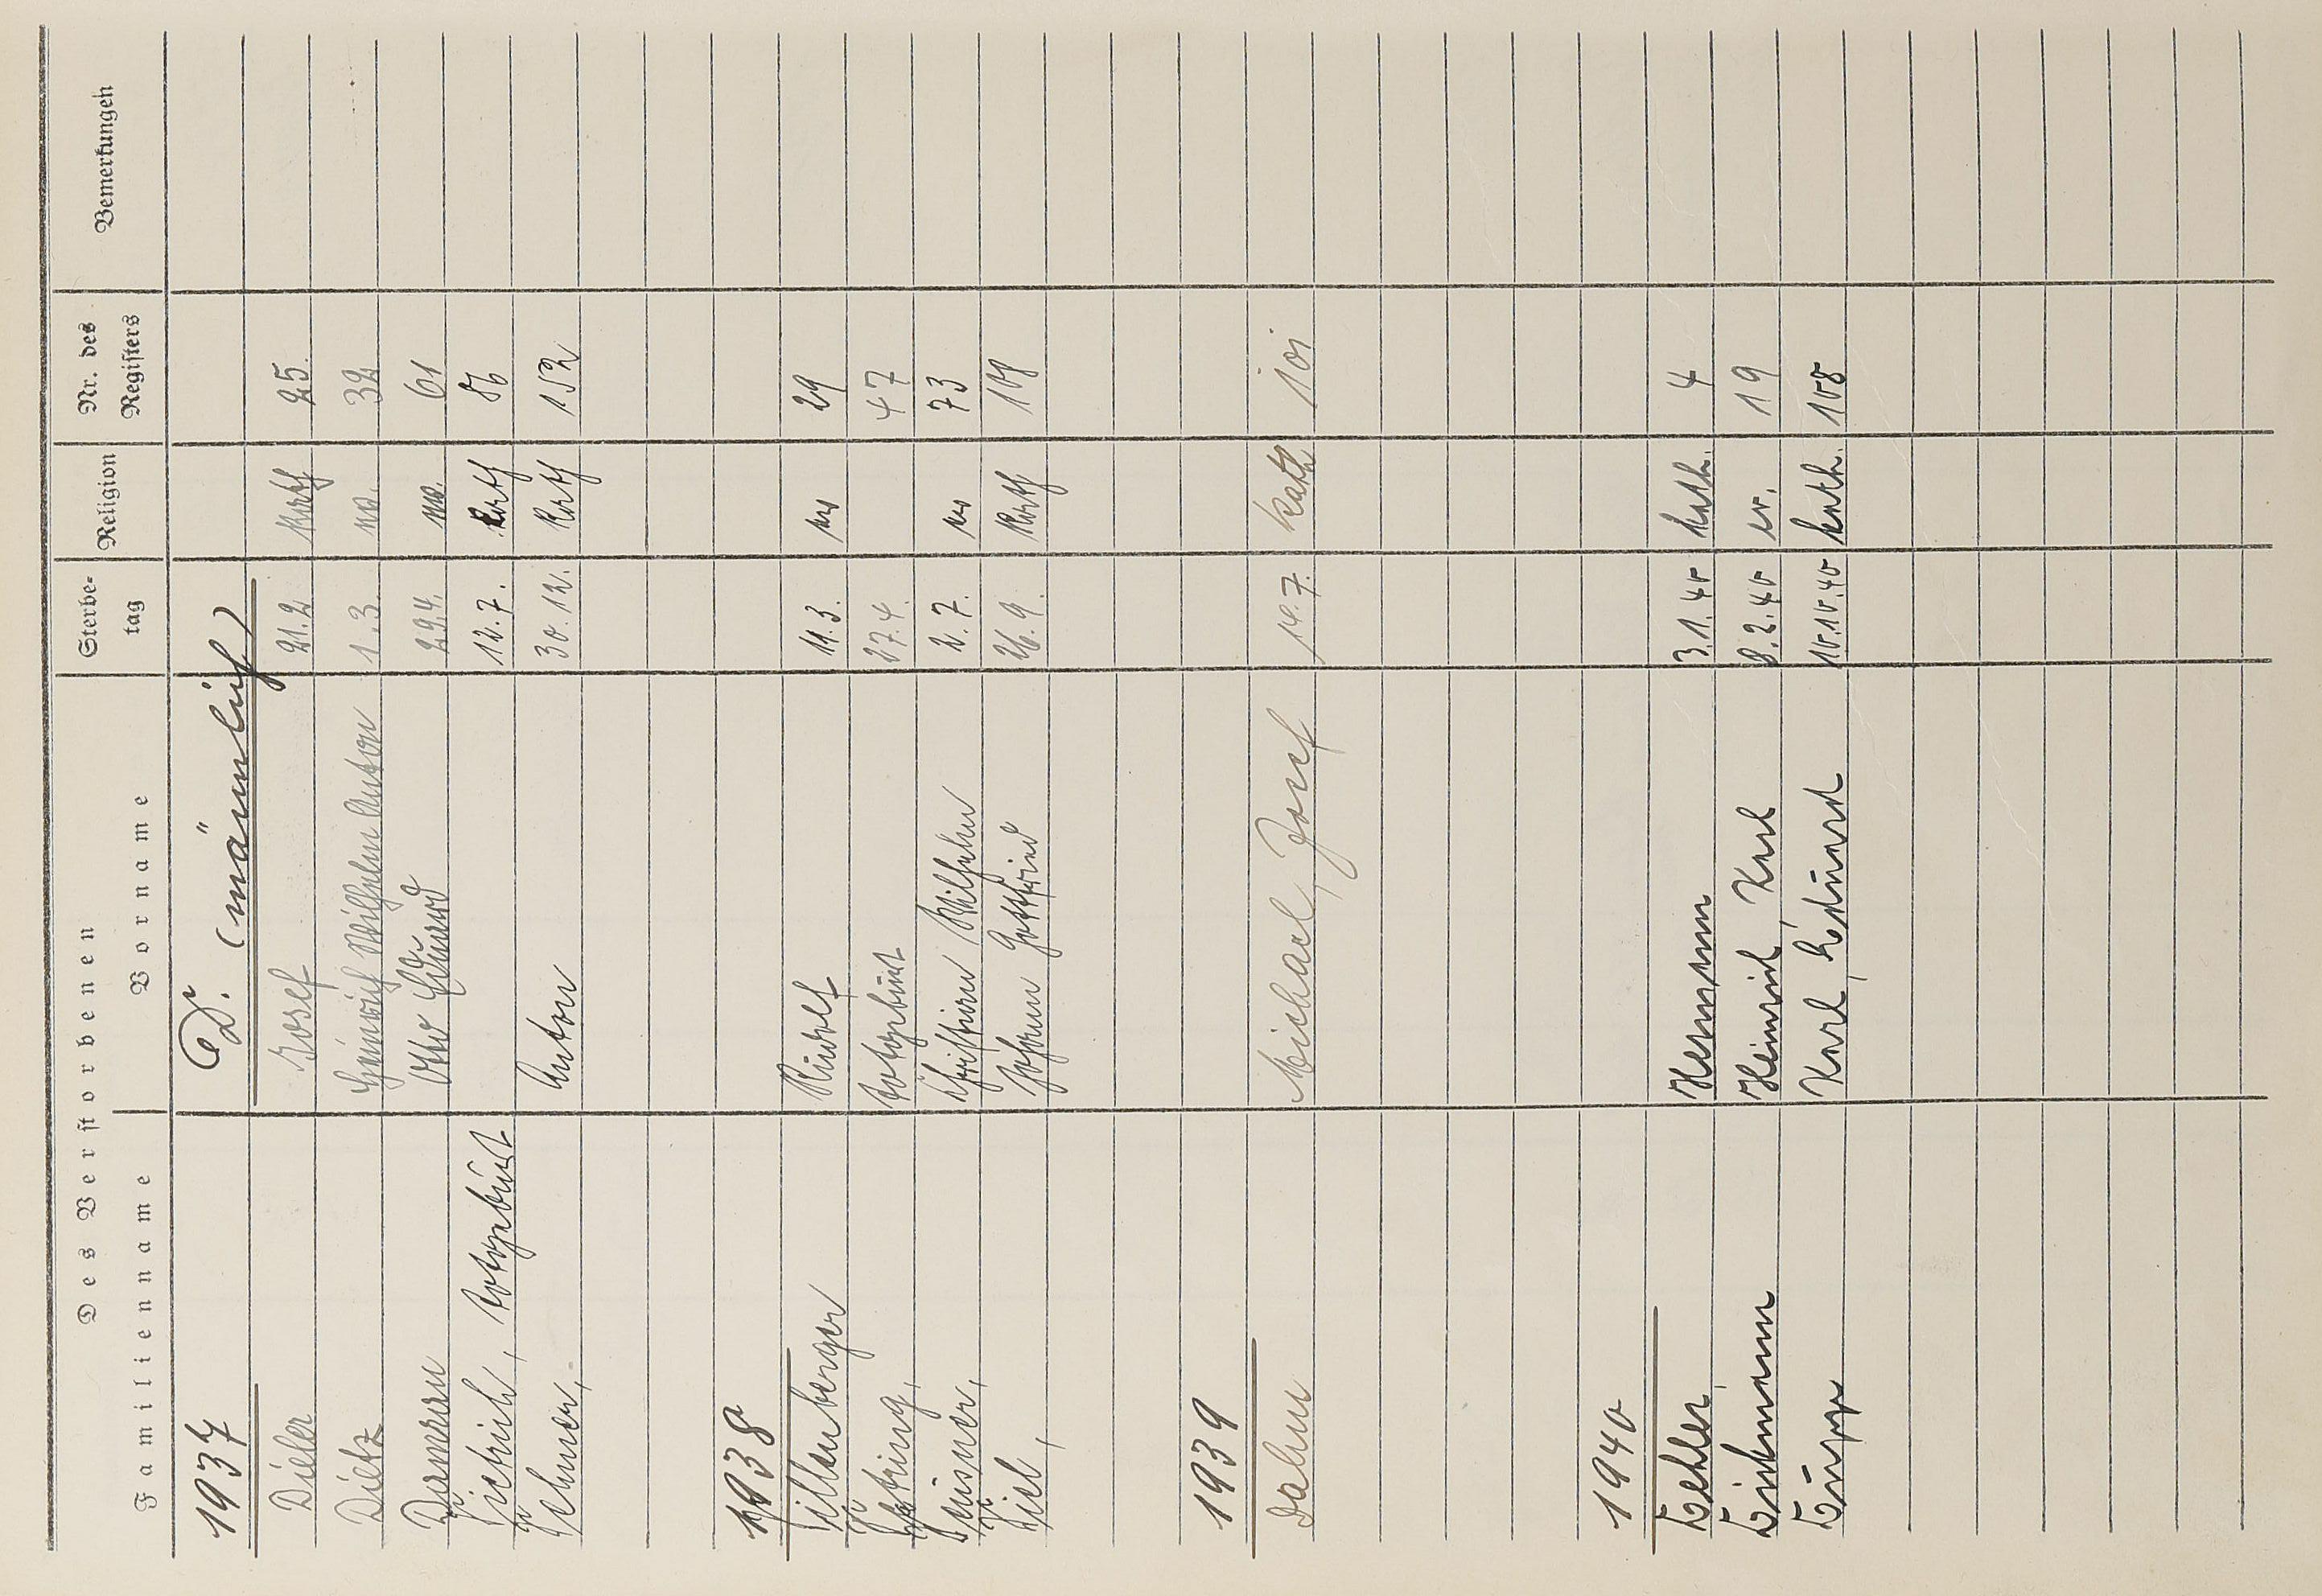 Des Verstorbenen
Familienname Vorname Sterbe-tag Religion Nr. des Registers Bemerkungen
1937 D. (männlich)
Dieler Josef 21.2 kath 25.
Dietz Heinrich Wilhelm Anton 1.3. ev. 32
Damann Otto Eduard 29.4. ev. 61
Dietrich, Totgeburt 12.7. kath 86
Dehmer, Anton 30.12. kath 152
1938
Dillenberger Rudolf 11.3. ev 29
Totgeburt 27.4. 47
Christian Wilhelm 2.7. ev 73
Diel, Johann Gottfried 26.9. kath 108
1939
Dahm Michael, Josef 14.7. kath 101
1940
Dehler Hermann 3.1.40 kath. 4
Dickmann Heinrich, Karl 8.2.40 ev. 19
Karl, Eduard 10.10.40 kath. 108